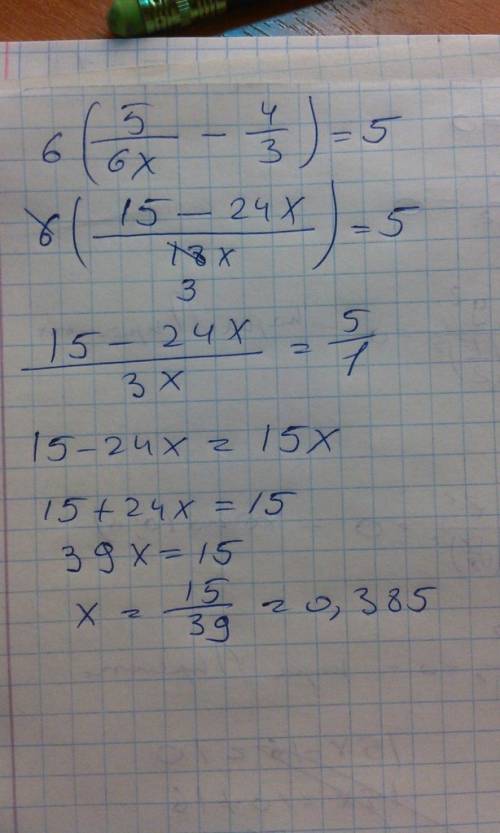 6(5/6x − 4/3) = 5
6((15 − 24x)/18x) = 5
3
(15 − 24x)/3x = 5/1
15 − 24x = 15x
15 + 24x = 15
39x = 15
x = 15/39 = 0,385